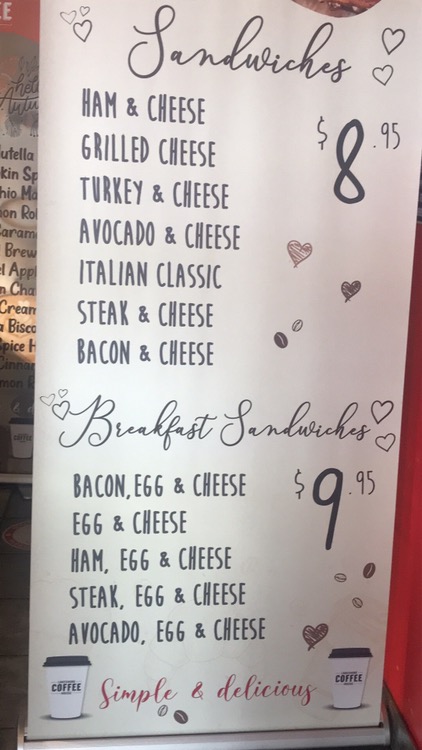 Sandwiches
HAM & CHEESE
GRILLED CHEESE
TURKEY & CHEESE
AVOCADO & CHEESE
ITALIAN CLASSIC
STEAK & CHEESE
BACON & CHEESE
$8.95
Breakfast Sandwiches
BACON, EGG & CHEESE
EGG & CHEESE
HAM, EGG & CHEESE
STEAK, EGG & CHEESE
AVOCADO, EGG & CHEESE
$9.95
COFFEE
Simple & delicious
COFFEE